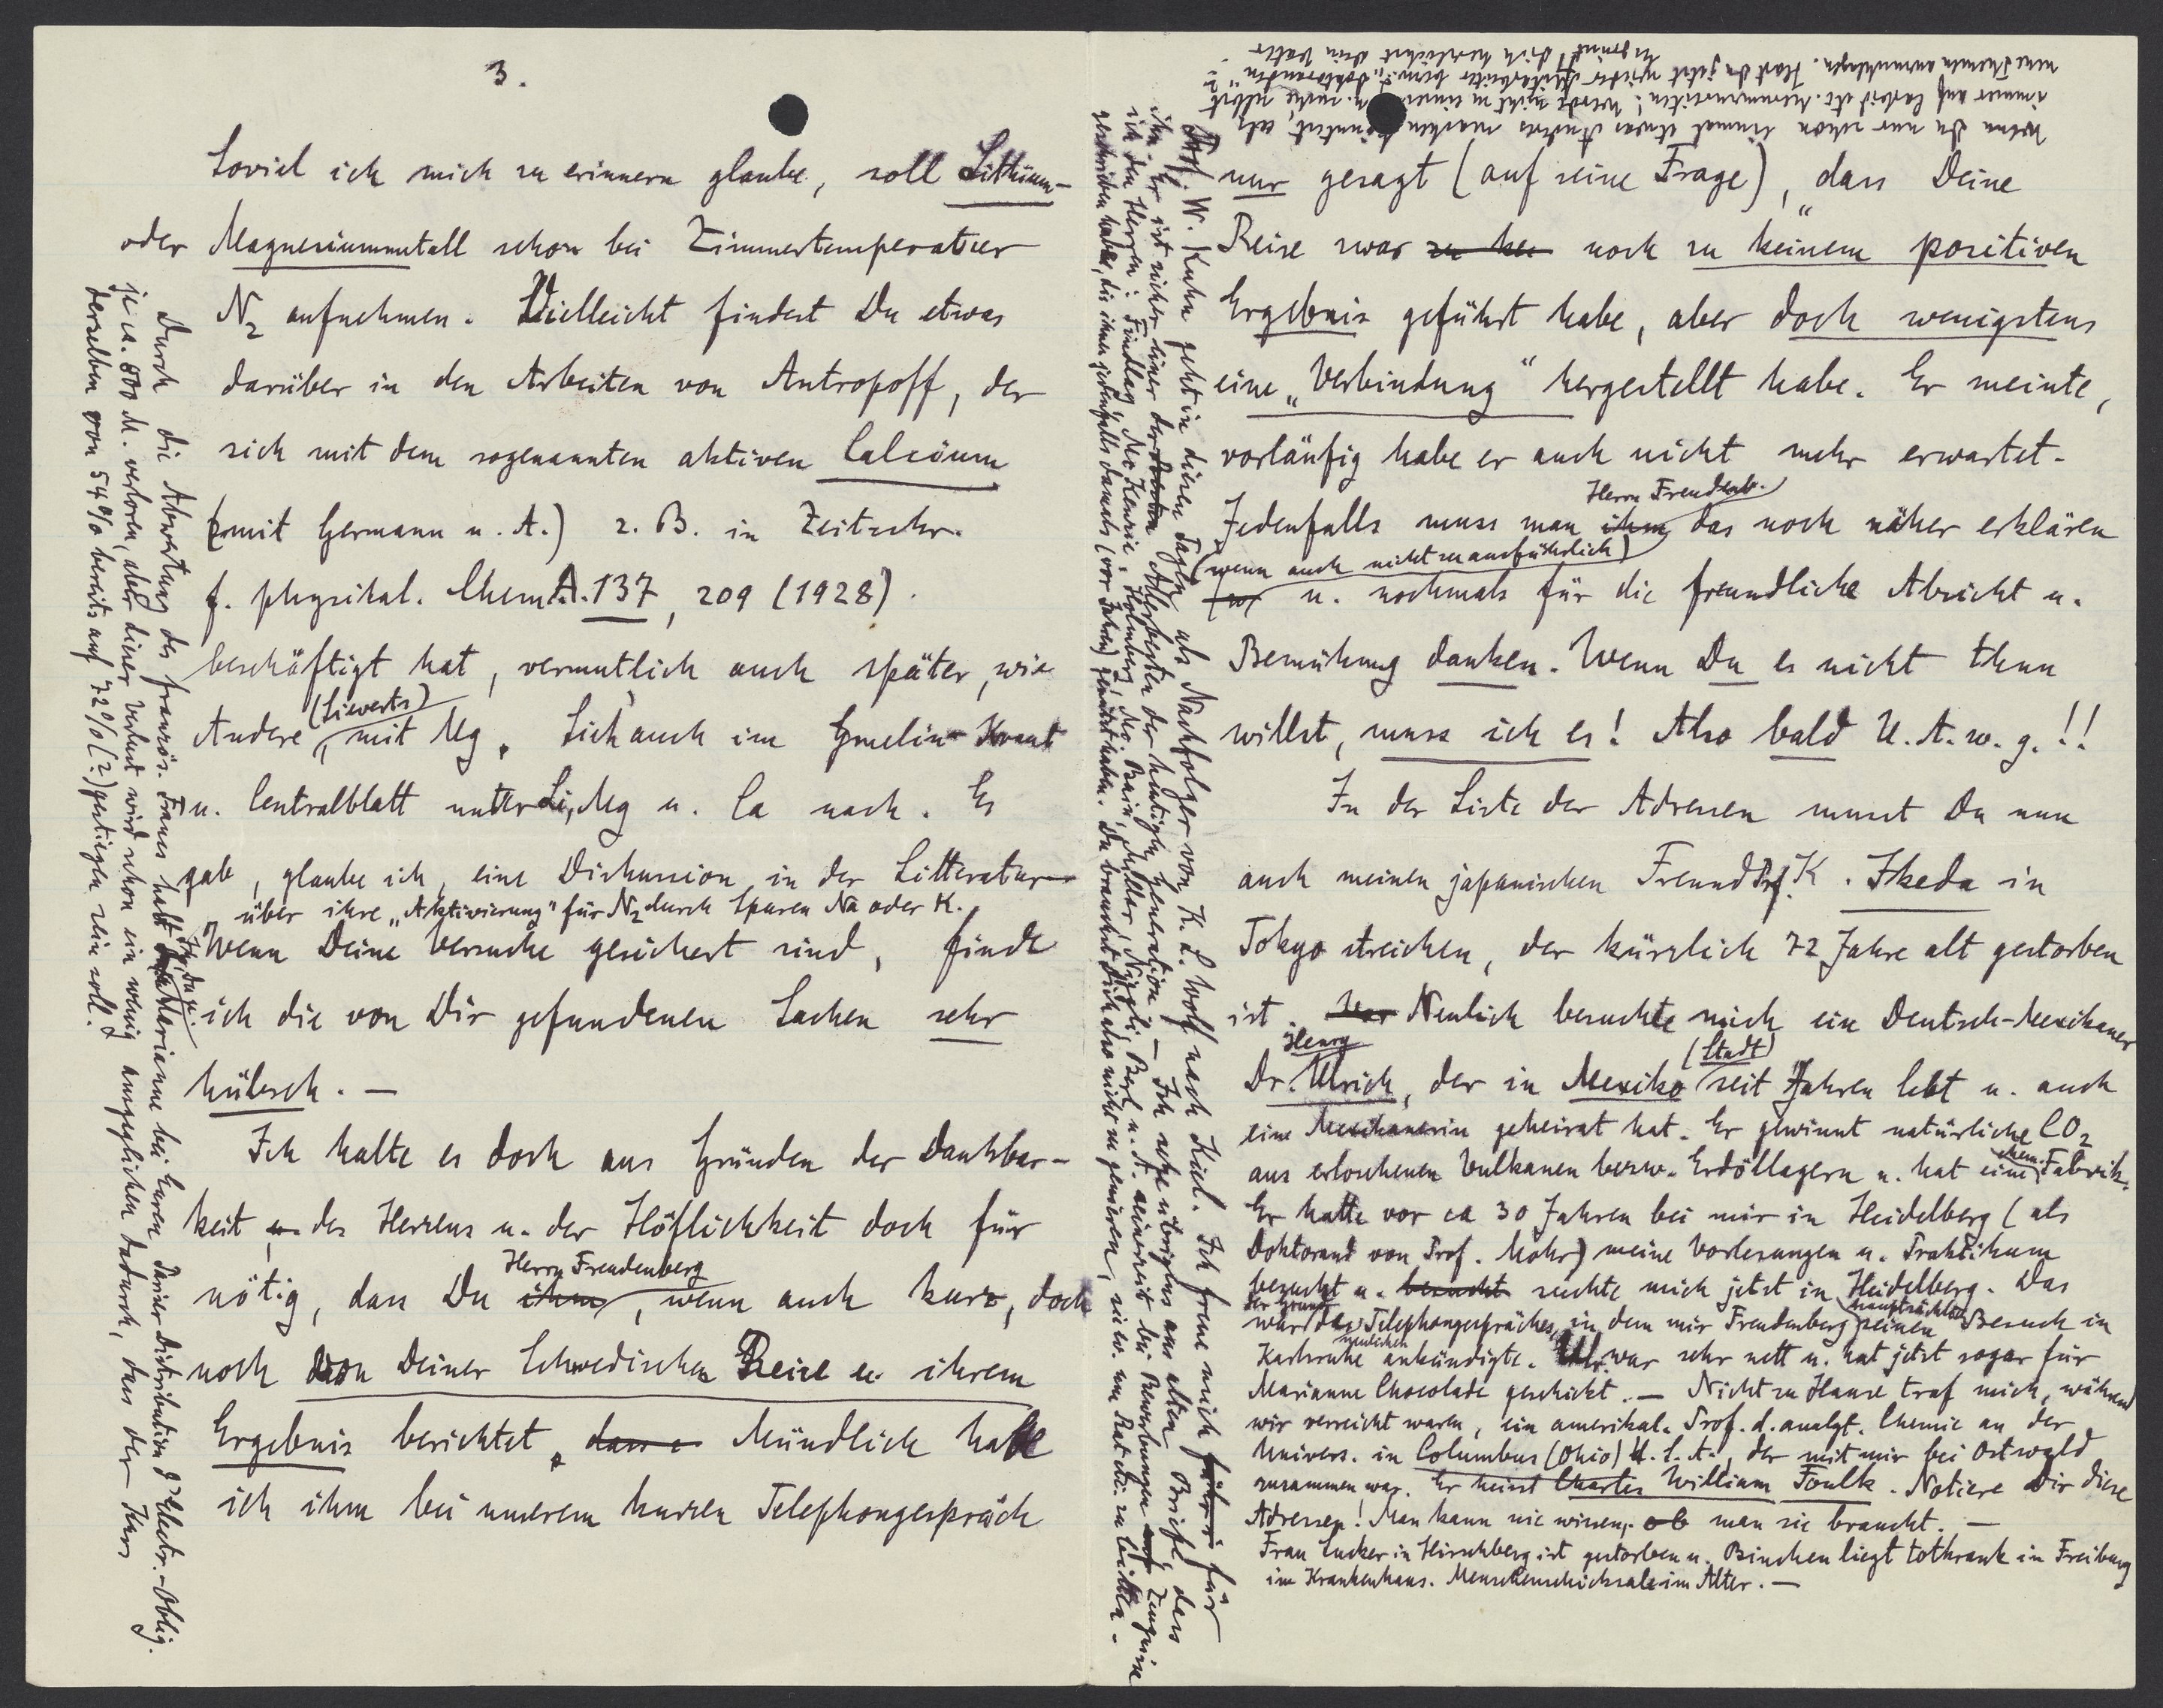 3.
Soviel ich mich zu erinnern glaube, soll Lithium-
oder Magnesiummetall schon bei Zimmertemperatur
N2 aufnehmen. Vielleicht findest Du etwas
darüber in den Arbeiten von Antropoff, der
sich mit dem sogenannten aktiven Calcium
(mit Germann u. A.) z. B. in Zeitschr.
f. physikal. Chem. A. 137, 209 (1928).
beschäftigt hat, vermutlich auch später, wie
Andere (Sieverts), mit Mg. Sieh auch im Gmelin-Kraut
u. Centralblatt unter Li, Mg u. Ca nach. Es
gab, glaube ich, eine Diskussion in der Litteratur
über ihre „Aktivierung" für N2 durch Spuren Na oder K.
Wenn Deine Versuche gesichert sind, finde
ich die von Dir gefundenen Sachen sehr
hübsch. —
Ich halte es doch aus Gründen der Dankbar-
keit u. des Herzens u. der Höflichkeit doch für
nötig, dass Du ihm Herrn Freudenberg, wenn auch kurz, doch
noch von Deiner Schwedischen Reise u. ihrem
Ergebnis berichtet. dass e Mündlich habe
ich ihm bei unserem kurzen Telephongespräch
Durch die Abwertung des französ. Francs habt Ihr, Du u. Marianne bei Euren Pariser Distribution d'Électr.-Oblig.
je ca. 500 M. verloren, aber dieser Verlust wird schon ein wenig ausgeglichen dadurch, dass der Kurs
derselben von 54% bereits auf 72% (?) gestiegen sein soll.
nur gesagt (auf seine Frage), „dass Deine
Reise zwar zu kei noch zu keinem positiven
Ergebnis geführt habe, aber doch wenigstens
eine „Verbindung" hergestellt habe. Er meinte,
vorläufig habe er auch nicht mehr erwartet.
Jedenfalls muss man ihm Herrn Freudenb. das noch näher erklären
(wenn auch nicht zu ausführlich)
u. nochmals für die freundliche Absicht u.
Bemühung danken. Wenn Du es nicht thun
willst, muss ich es! Also bald U. A. w. g.!!
In der Liste der Adressen musst Du nun
auch meinen japanischen Freund Prof. K. Ikeda in
Tokyo streichen, der kürzlich 72 Jahre alt gestorben
ist. Neulich besuchte mich ein Deutsch-Mexikaner
Dr. Henry Ulrich, der in Mexiko (Stadt) seit Jahren lebt u. auch
eine Mexikanerin geheirat hat. Er gewinnt natürliche CO2
aus erloschenen Vulkanen bezw. Erdöllagern u. hat eine chem. Fabrik.
Er hatte vor ca 30 Jahren bei mir in Heidelberg (als
Doktorand von Prof. Mohr) meine Vorlesungen u. Praktikum
besucht u. besucht suchte mich jetzt in Heidelberg. Das
war der Grund des Telephongespräches, in dem mir Freudenberg hauptsächlich seinen Besuch in
Karlsruhe neulichen ankündigte. Ulr. war sehr nett u. hat jetzt sogar für
Marianne Chocolade geschickt. — Nicht zu Hause traf mich, während
wir verreist waren, ein amerikan. Prof. d. analyt. Chemie an der
Univers. in Columbus (Ohio) U. S. A., der mit mir bei Ostwald
zusammen war. Er heisst Charles William Foulk. Notiere Dir diese
Adressen! Man kann nie wissen, ob man sie braucht. —
Frau Eucker in Hirschberg ist gestorben u. Binchen liegt totkrank in Freiburg
im Krankenhaus. Menschenschicksale im Alter. —
Prof. W. Kuhn geht in diesen Tagen als Nachfolger von K. L. Wolf nach Kiel. Ich freue mich für
ihn. Er ist sicher einer der Allerbesten der heutigen Generation. — Ich sehe übrigens aus alten Briefe, dass
ich den Herren: Findlay, McKenzie, Holmberg, Mc. Bain, Müller, Niggli, Berl u. A. seinerzeit bei Bewerbungen Zeugnisse
geschrieben habe, die ihnen jedenfalls damals (vor Jahren) genützt haben. Du brauchst Dich also nicht zu genieren, sie ev. um Rat etc. zu bitten. -
Wenn Du nur schon einmal etwas Anderes machen könntest, als
immer auf Carbid etc. herumzureiten! Werde nicht zu einseitig u. suche selbst
neue Themen anzuschlagen. Hast Du jetzt wieder Mitarbeiter bezw. „Doktoranden"?
Es grüsst Dich herzlichst Dein Vater